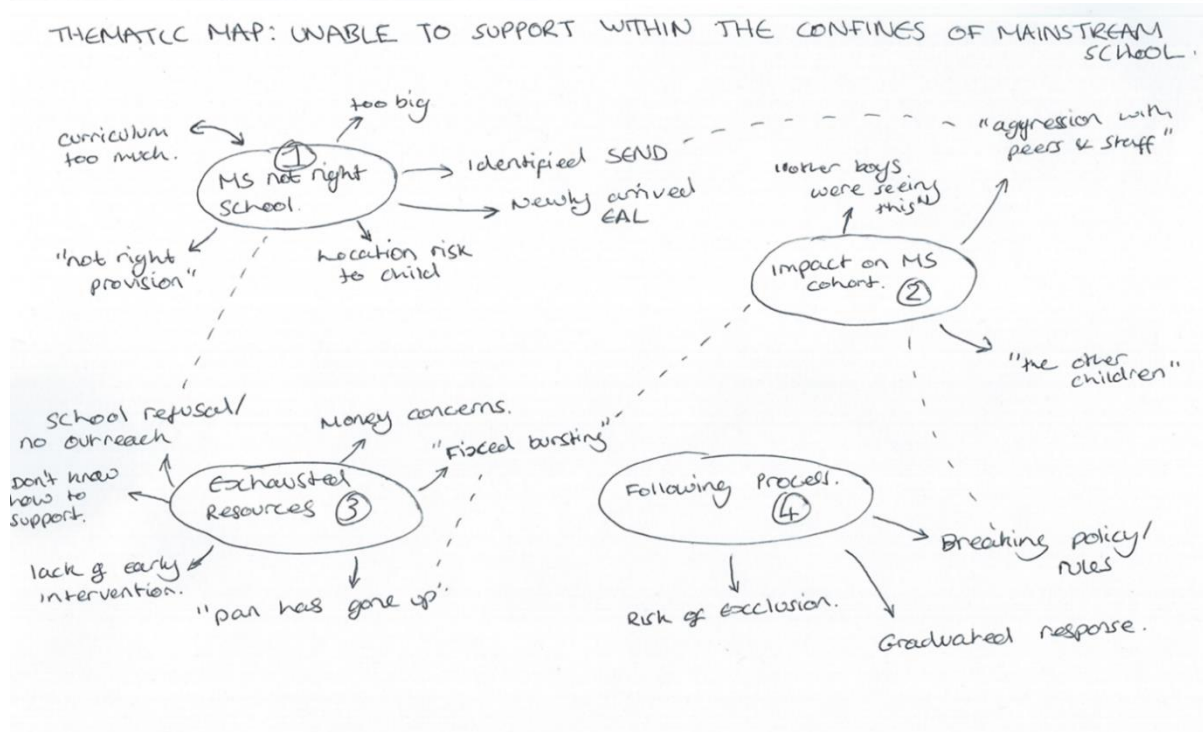 THEMATIC MAP: UNABLE TO SUPPORT WITHIN THE CONFINES OF MAINSTREAM
SCHOOL.
too big
curriculum
too much.
1
MS not right
school.
Identified SEND
Newly arrived
EAL
"not right
provision"
Location risk
to child
"aggression with
peers & staff"
"other boys
were seeing
this"
Impact on MS
cohort. 2
"the other
children"
School refusal/
no outreach
Money concerns.
"Fixed bursting"
Don't know
how to
support.
Exhausted
Resources 3
lack of early
intervention.
"pan has gone up".
Following Process.
4
Breaking policy/
rules
Risk of Exclusion.
Graduated response.